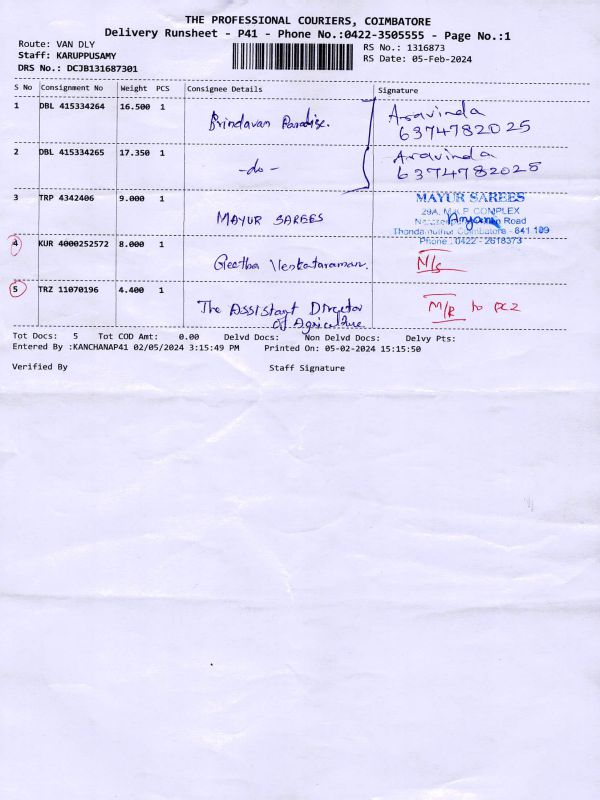 THE PROFESSIONAL COURIERS, COIMBATORE
Delivery Runsheet - P41 - Phone No.:0422-3505555 - Page No.:1
Route: VAN DLY
RS No.: 1316873
Staff: KARUPPUSAMY
RS Date: 05-Feb-2024
DRS No.: DCJB131687301
S No Consignment No Weight PCS Consignee Details Signature
1 DBL 415334264 16.500 1 Brindavan Paradise. Aravinda
6374782025
2 DBL 415334265 17.350 1 -do- Aravinda
6374782025
3 TRP 4342406 9.000 1 MAYUR SAREES MAYUR SAREES
29A, COMPLEX
Road
Coimbatore - 641 109
Phone : 0422 - 2618373
4 KUR 4000252572 8.000 1 Geetha Venkataraman. M/S
5 TRZ 11070196 4.400 1 The Assistant Director M/R to PC2
of Agriculture
Tot Docs: 5 Tot COD Amt: 0.00 Delvd Docs: Non Delvd Docs: Delvy Pts:
Entered By :KANCHANAP41 02/05/2024 3:15:49 PM Printed On: 05-02-2024 15:15:50
Verified By Staff Signature